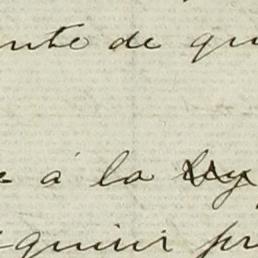 nte de qu
á la ley
quirir pr